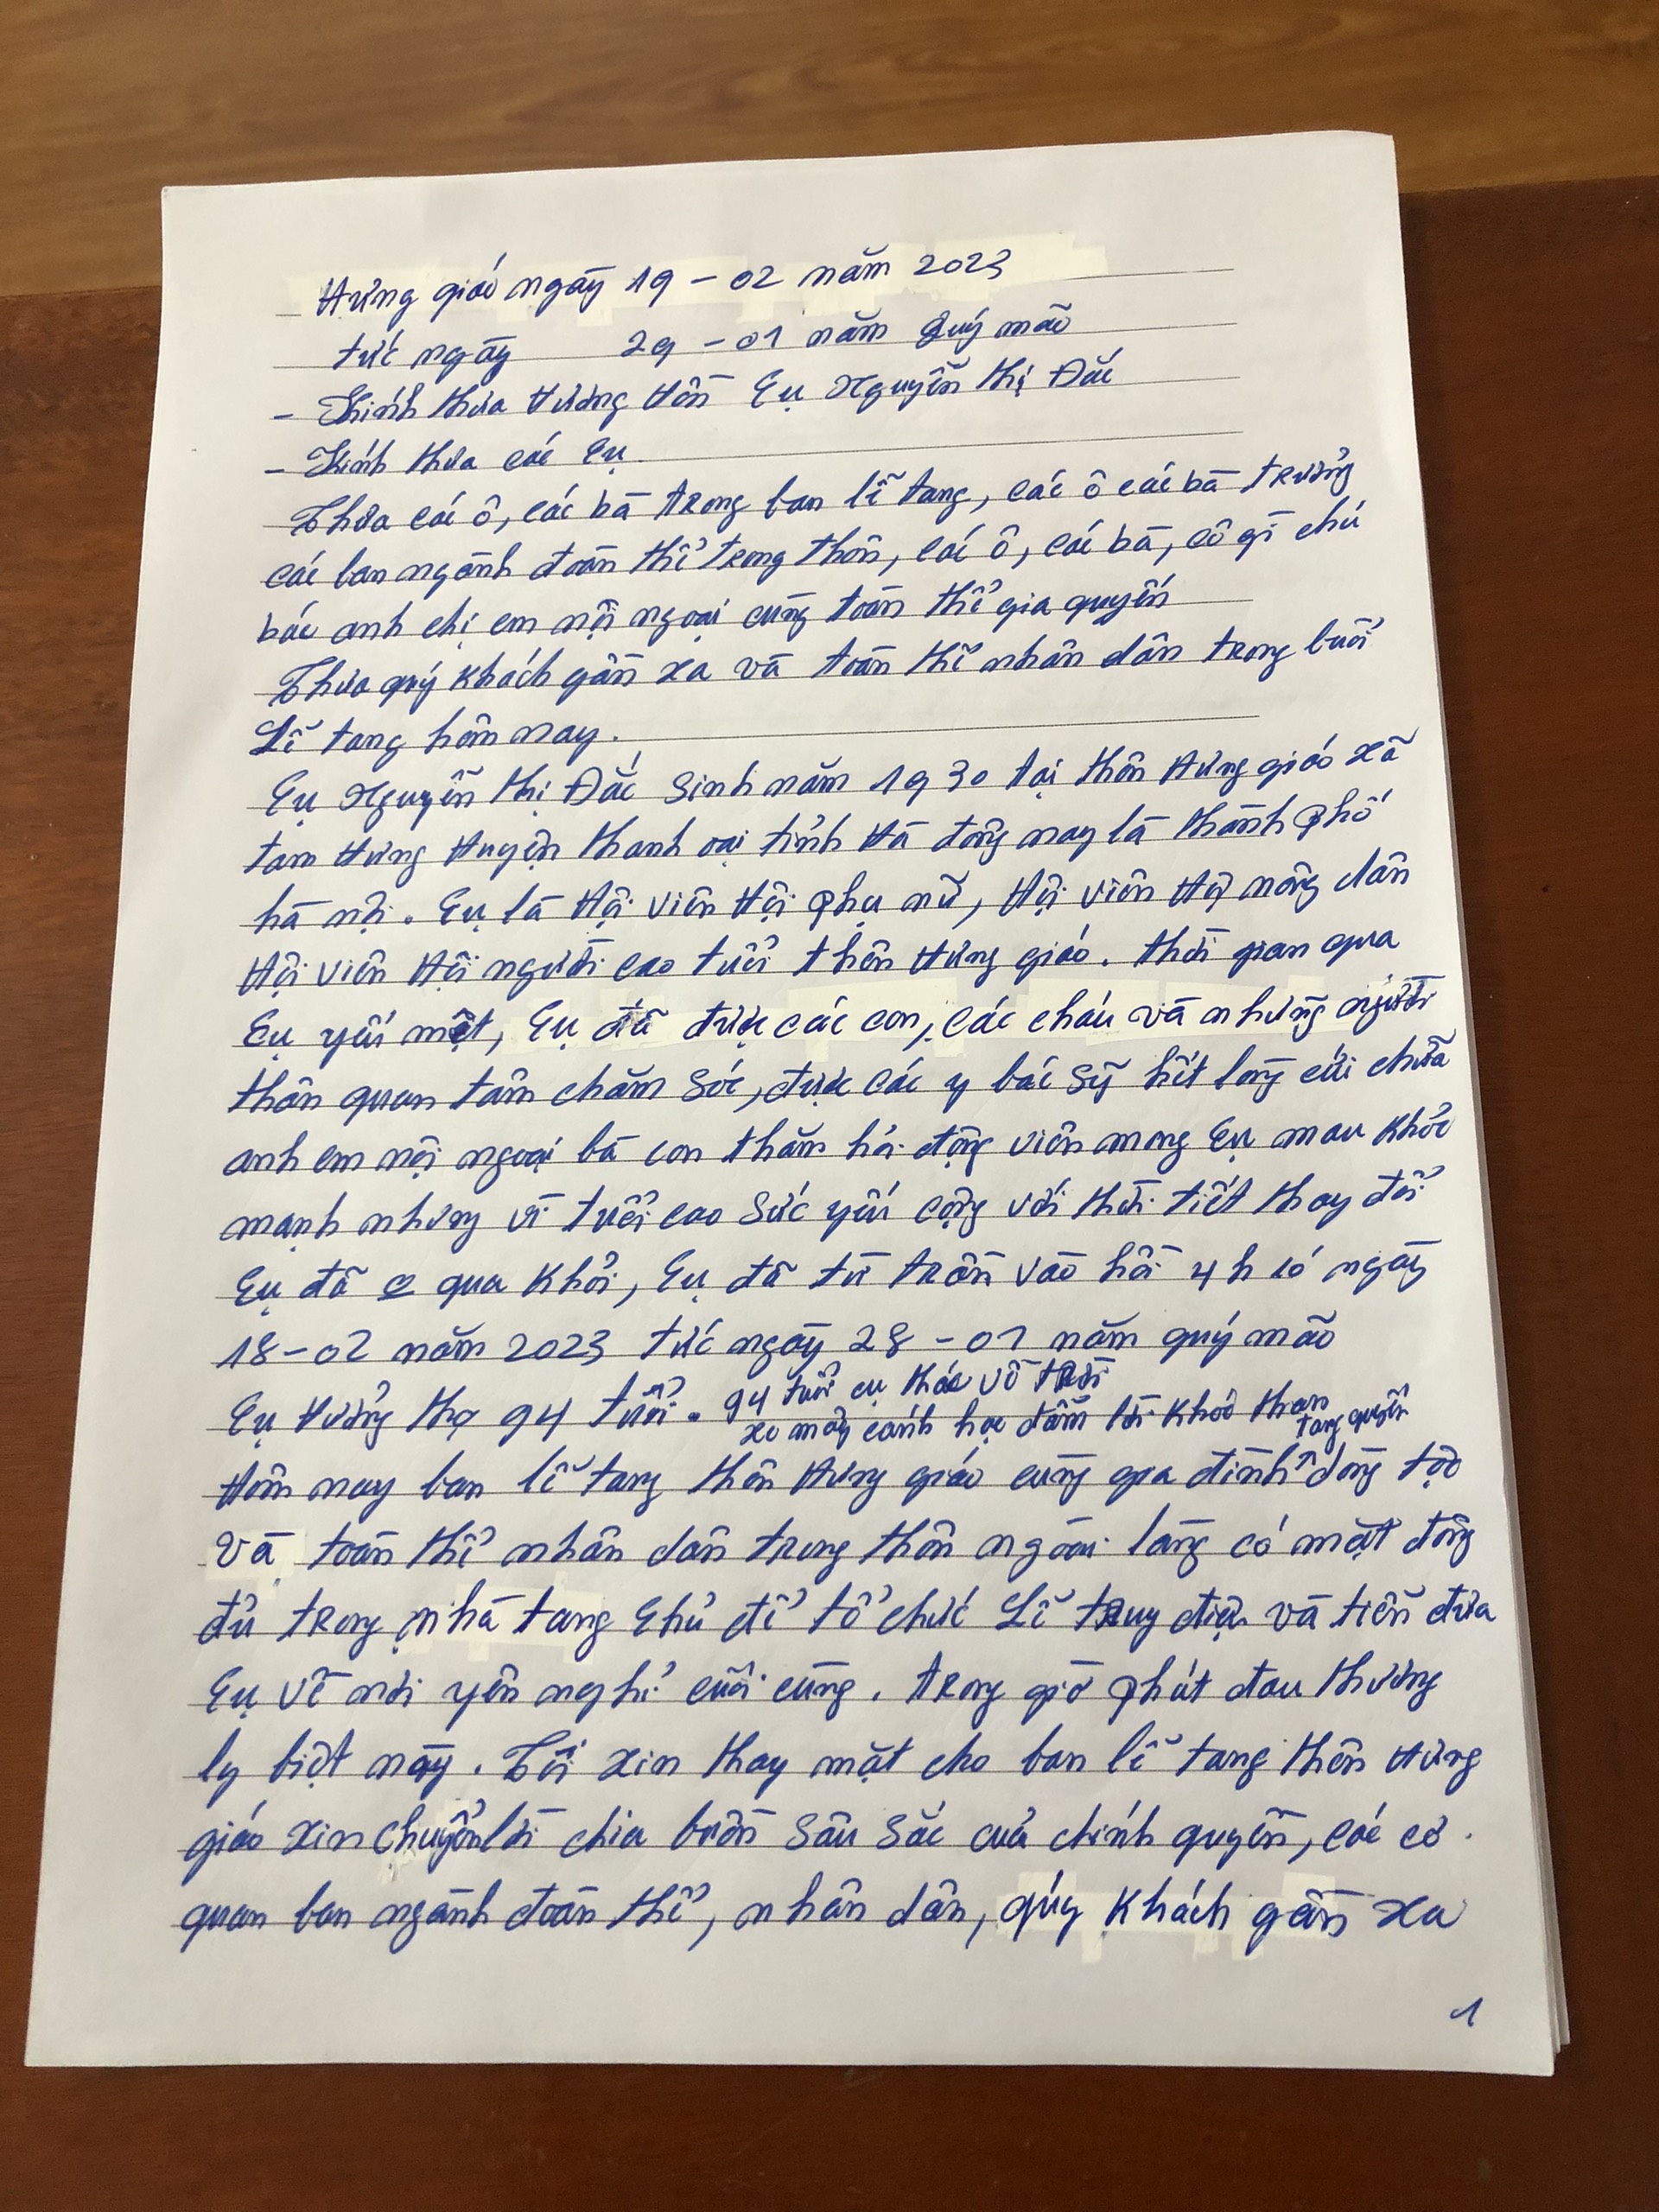 Hưng giáo ngày 19 - 02 năm 2023
tức ngày 29 - 01 năm Quý mão
- Kính thưa Hương Hồn Cụ Nguyễn thị Đắc
- Kính thưa các Cụ
Thưa các ô, các bà trong ban lễ tang, các ô các bà trưởng
các ban ngành đoàn thể trong thôn, các ô, các bà, cô gì chú
bác anh chị em nội ngoại cùng toàn thể gia quyến
Thưa quý khách gần xa và toàn thể nhân dân trong buổi
Lễ tang hôm nay.
Cụ Nguyễn thị Đắc sinh năm 1930 tại thôn Hưng giáo xã
tam Hưng Huyện thanh oai tỉnh Hà đông nay là thành phố
hà nội. Cụ là Hội viên Hội phụ nữ, Hội viên Hội nông dân
Hội viên Hội người cao tuổi thôn Hưng giáo. thời gian qua
Cụ yếu mệt, Cụ đã được các con, các cháu và những người
thân quan tâm chăm sóc, được các y bác sỹ hết lòng cứu chữa
anh em nội ngoại bà con thăm hỏi động viên mong Cụ mau khỏe
mạnh nhưng vì tuổi cao sức yếu cộng với thời tiết thay đổi
Cụ đã qua khỏi, Cụ đã từ trần vào hồi 4h 10 ngày
18-02 năm 2023 tức ngày 28 - 01 năm quý mão
Cụ Hưởng thọ 94 tuổi. 94 tuổi cụ thác về trời
xe mây cánh hạc đẫm lời khóc than
tang quyến
Hôm nay ban lễ tang thôn Hưng giáo cùng gia đình dòng tộc
và toàn thể nhân dân trong thôn ngoài làng có mặt đông
đủ trong nhà tang chủ để tổ chức Lễ truy điệu và tiễn đưa
Cụ về nơi yên nghỉ cuối cùng. trong giờ phút đau thương
ly biệt này. Tôi xin thay mặt cho ban lễ tang thôn Hưng
giáo xin chuyển lời chia buồn sâu sắc của chính quyền, các cơ
quan ban ngành đoàn thể, nhân dân, qúy khách gần xa
1